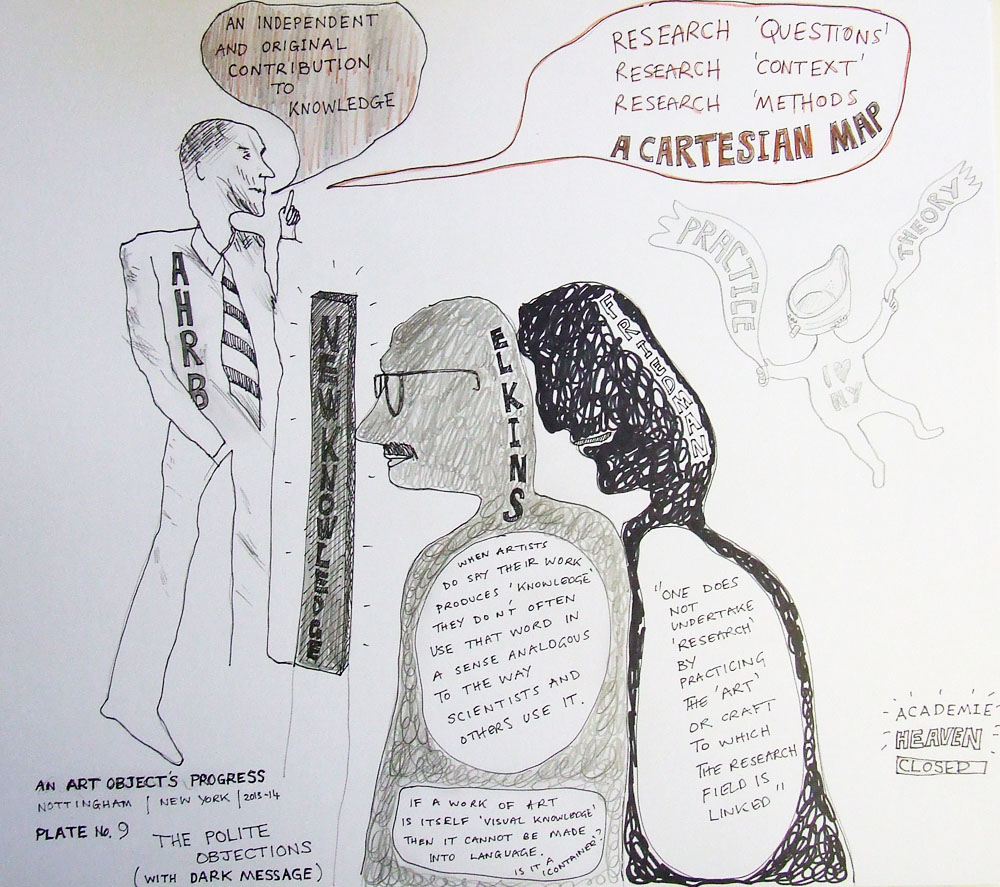 AN INDEPENDENT
AND ORIGINAL
CONTRIBUTION
TO
KNOWLEDGE
RESEARCH 'QUESTIONS'
RESEARCH 'CONTEXT'
RESEARCH 'METHODS
A CARTESIAN MAP
PRACTICE
THEORY
I ♥
NY
AHRB
NEW KNOWLEDGE
ELKINS
FRIEDMAN
WHEN ARTISTS
DO SAY THEIR WORK
PRODUCES 'KNOWLEDGE'
THEY DON'T OFTEN
USE THAT WORD IN
A SENSE ANALOGOUS
TO THE WAY
SCIENTISTS AND
OTHERS USE IT.
"ONE DOES
NOT
UNDERTAKE
'RESEARCH'
BY
PRACTICING
THE 'ART'
OR CRAFT
TO WHICH
THE RESEARCH
FIELD IS
LINKED"
IF A WORK OF ART
IS ITSELF 'VISUAL KNOWLEDGE'
THEN IT CANNOT BE MADE
INTO LANGUAGE.
IS IT A 'CONTAINER'?
ACADEMIE
HEAVEN
CLOSED
AN ART OBJECT'S PROGRESS
NOTTINGHAM | NEW YORK | 2013-14
PLATE No. 9
THE POLITE
OBJECTIONS
(WITH DARK MESSAGE)